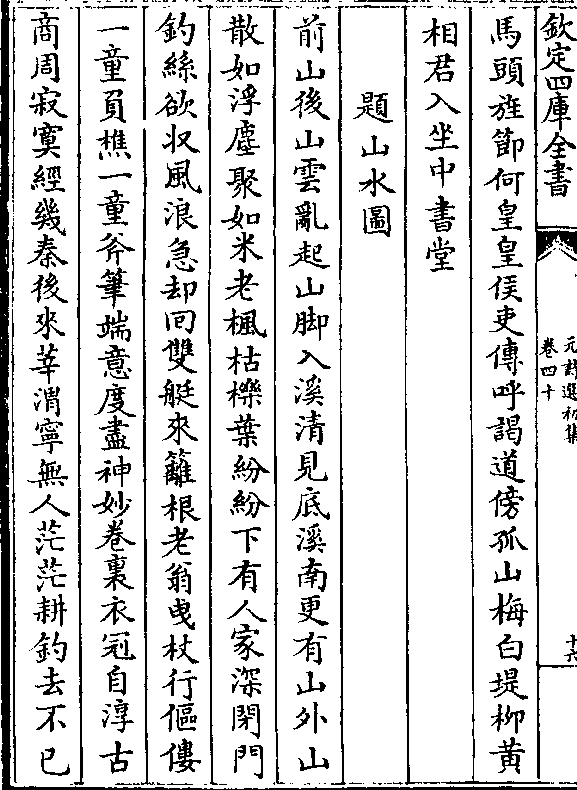 欽定四庫全書
元詩選初集
卷四十
十六
馬頭旌節何皇皇侯吏傳呼謁道傍孤山梅白堤柳黄
相君入坐中書堂
題山水圖
前山後山雲亂起山脚入溪清見底溪南更有山外山
散如浮塵聚如米老楓枯櫟葉紛紛下有人家深閉門
釣絲欲収風浪急却回雙艇來籬根老翁曵杖行傴僂
一童負樵一童斧筆端意度盡神妙卷裏衣冠自淳古
商周寂寞經幾秦後來莘渭寧無人茫茫耕釣去不已